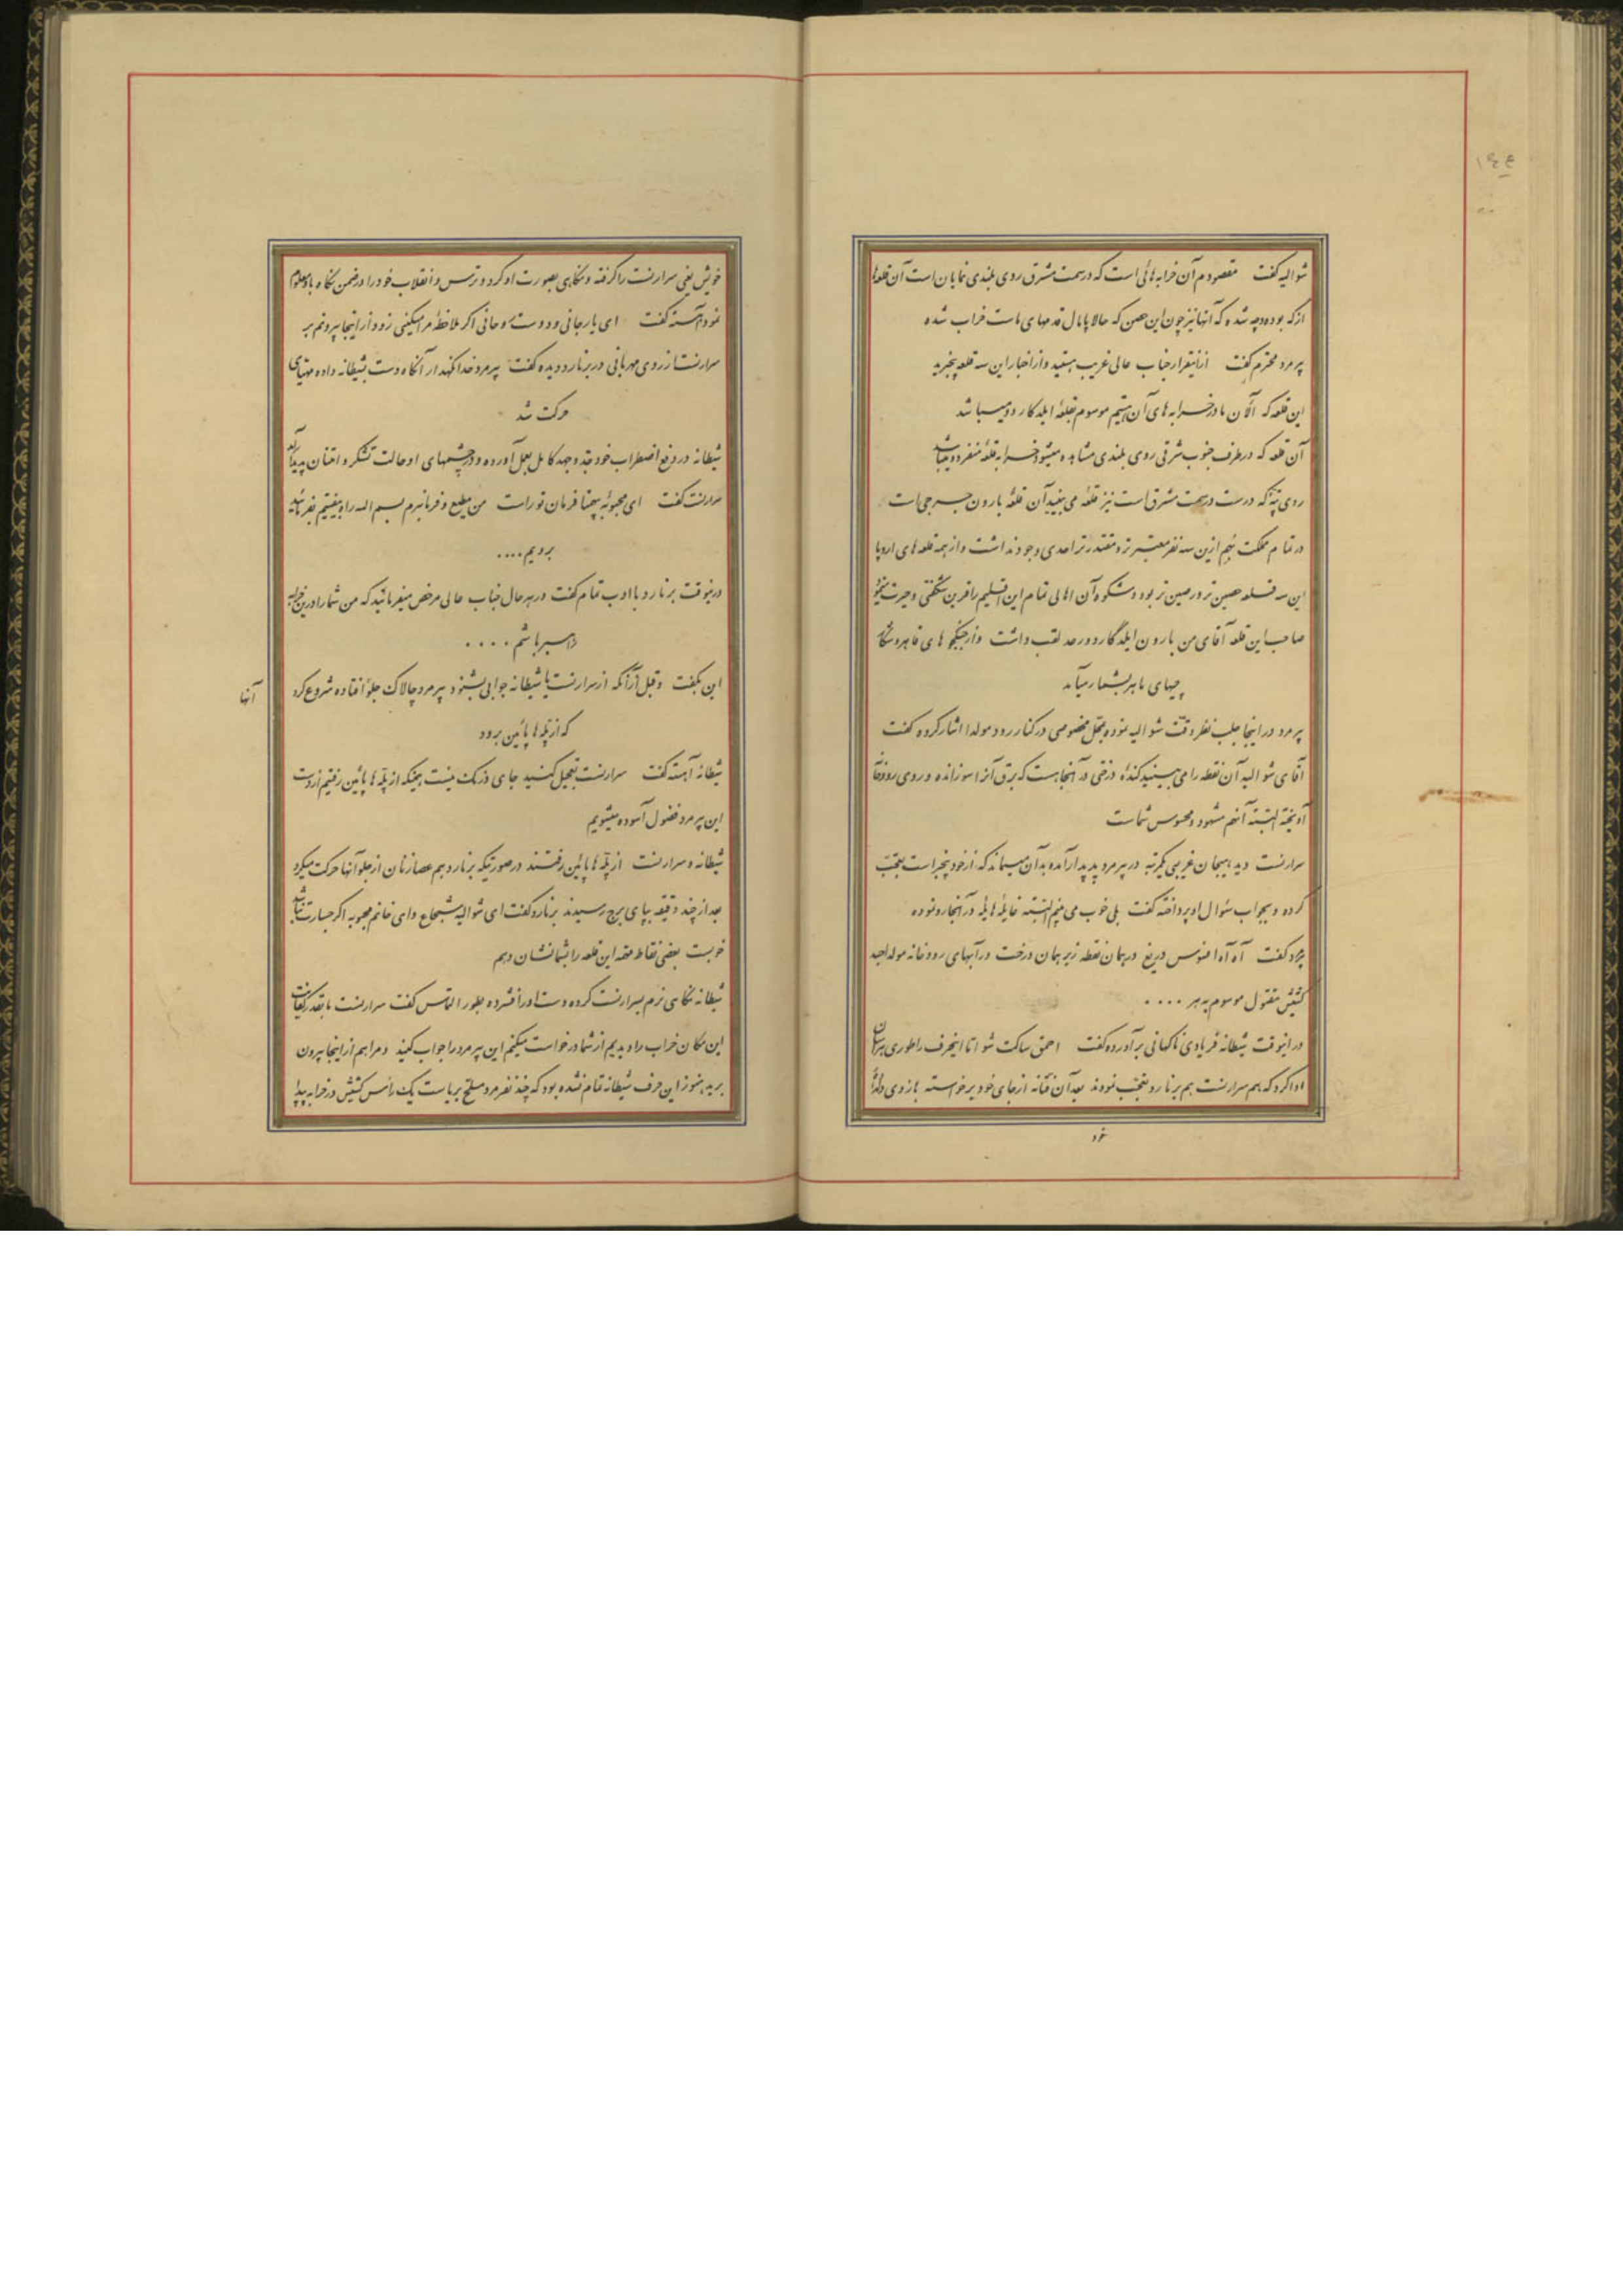 شوالیه گفت مقصودم آن خرابه هائی است که در سمت مشرق روی بلندی نمایان است آن قلعها
از که بوده و چه شده که آنها نیز چون این حصن که حالا پامال قدمهای ماست خراب شده
پیر مرد محترم گفت از اینقرار جناب عالی غریب هستید و از اخبار این سه قلعه بیخبرید
این قلعه که الآن ما در خرابه های آن هستیم موسوم بقلعهٔ ایلدکارد و میباشد
آن قلعه که در طرف جنوب شرقی روی بلندی مشاهده میشود خرابه قلعهٔ منفرد و میباشد
روی تپهٔ که درست در سمت مشرق است نیز قلعهٔ می بینید آن قلعهٔ بارون جرجی است
در تمام مملکت بهم ازین سه نفر معتبرتر و مقتدرتر احدی وجود نداشت و از همه قلعه های اروپا
این سه قلعه حصین تر و رصین تر بود و شکوه آن اهالی تمام این اقلیم را قرین شگفتی و حیرت
صاحب این قلعه آقای من بارون ایلدکارد و رحد لقب داشت و از جنگجو های قاهر و شکار
چیهای ماهر بشمار میآمد
پیر مرد در اینجا جلب نظر دقت شوالیه نموده بمحل مخصوصی در کنار رود مولدا اشاره کرده گفت
آقای شوالیه آن نقطه را می بینید کنده درختی در آنجا هست که برق آنرا سوزانده و روی رودخا
آویخته البته آنهم مشهود و محسوس شماست
سرارنست دید هیجان غریبی یکمرتبه در پیر مرد پدیدار آمده بدآن میماند که از خود بیخبر است تعجب
کرده و بجواب سئوال او پرداخته گفت بلی خوب می بینم البته غایلهٔ هایله در آنجا رو نموده
پیرمرد گفت آه آه افسوس دریغ در همان نقطه زیر همان درخت در آبهای رودخانه مولدا جسد
کشیش مقتول موسوم به هر ....
در اینوقت شیطانه فریادی ناگهانی برآورده گفت احمق ساکت شو اما اینحرف را طوری هراسان
ادا کرد که هم سرارنست هم برنارد تعجب نمودند بعد آن فتانه از جای خود برخواسته بازوی دلدا
خویش یعنی سرارنست را گرفته و نگاهی بصورت او کرد و ترس و انقلاب خود را در ضمن نگاه باو معلوم
نمود آهسته گفت ای یار جانی و دوست روحانی اگر ملاحظهٔ مرا میکنی زود از اینجا بیرونم بر
سرارنست از روی مهربانی در برنارد دیده گفت پیر مرد خدا نگهدار آنگاه دست بشیطانه داده مهیای
حرکت شد
شیطانه در دفع اضطراب خود جد و جهد کامل بعمل آورده و در چشمهای او حالت تشکر و امتنان پدید آمد
سرارنست گفت ای محبوبهٔ بیهمتا فرمان تو راست من مطیع و فرمانبرم بسم الله راه بیفتیم بفرمائید
برویم....
در ینوقت برنارد با ادب تمام گفت در هر حال جناب عالی مرخص میفرمائید که من شما را در ین خرابه
راهبر باشم ....
این بگفت و قبل از آنکه از سرارنست یا شیطانه جوابی بشنود پیر مرد چالاک جلو افتاده شروع کرد
که از پله ها پائین برود
شیطانه آهسته گفت سرارنست تعجیل کنید جای درنگ نیست همینکه از پله ها پائین رفتیم از دست
این پیر مرد فضول آسوده میشویم
شیطانه و سرارنست از پله ها پائین رفتند در صورتیکه برنارد هم عصا زنان از جلو آنها حرکت میکرد
بعد از چند دقیقه بپای برج رسیدند برنارد گفت ای شوالیه شجاع و ای خانم محبوبه اگر جسارت نباشد
خوبست بعضی نقاط مهمهٔ این قلعه را بشما نشان دهم
شیطانه نگاهی نرم بسرارنست کرده دست او را فشرده بطور التماس گفت سرارنست ما بقدر کفایت
این مکان خراب را دیدیم از شما درخواست میکنم این پیر مرد را جواب کنید و مرا هم از اینجا بیرون
برید هنوز این حرف شیطانه تمام نشده بود که چند نفر مرد مسلح بریاست یک رأس کشیش در خرابه پیدا
آنها